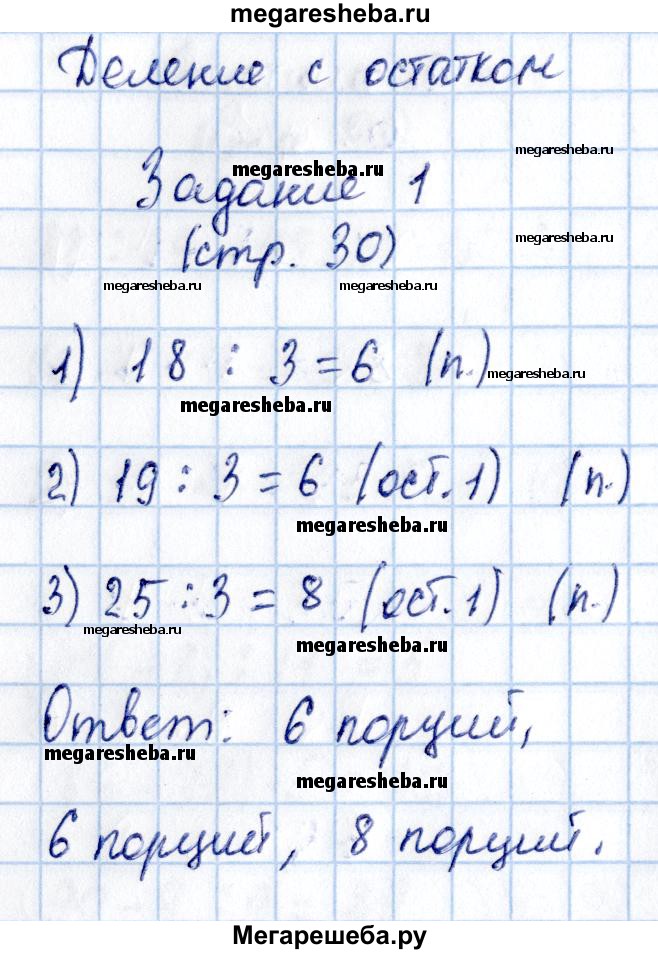 megaresheba.ru
Деление с остатком
megaresheba.ru
megaresheba.ru
Задание 1
megaresheba.ru
(стр. 30)
megaresheba.ru megaresheba.ru
1) 18 : 3 = 6 (п.)
megaresheba.ru
megaresheba.ru
2) 19 : 3 = 6 (ост. 1) (п.)
megaresheba.ru
3) 25 : 3 = 8 (ост. 1) (п.)
megaresheba.ru
megaresheba.ru
Ответ: 6 порций,
megaresheba.ru
megaresheba.ru
6 порций, 8 порций.
Мегарешеба.ру